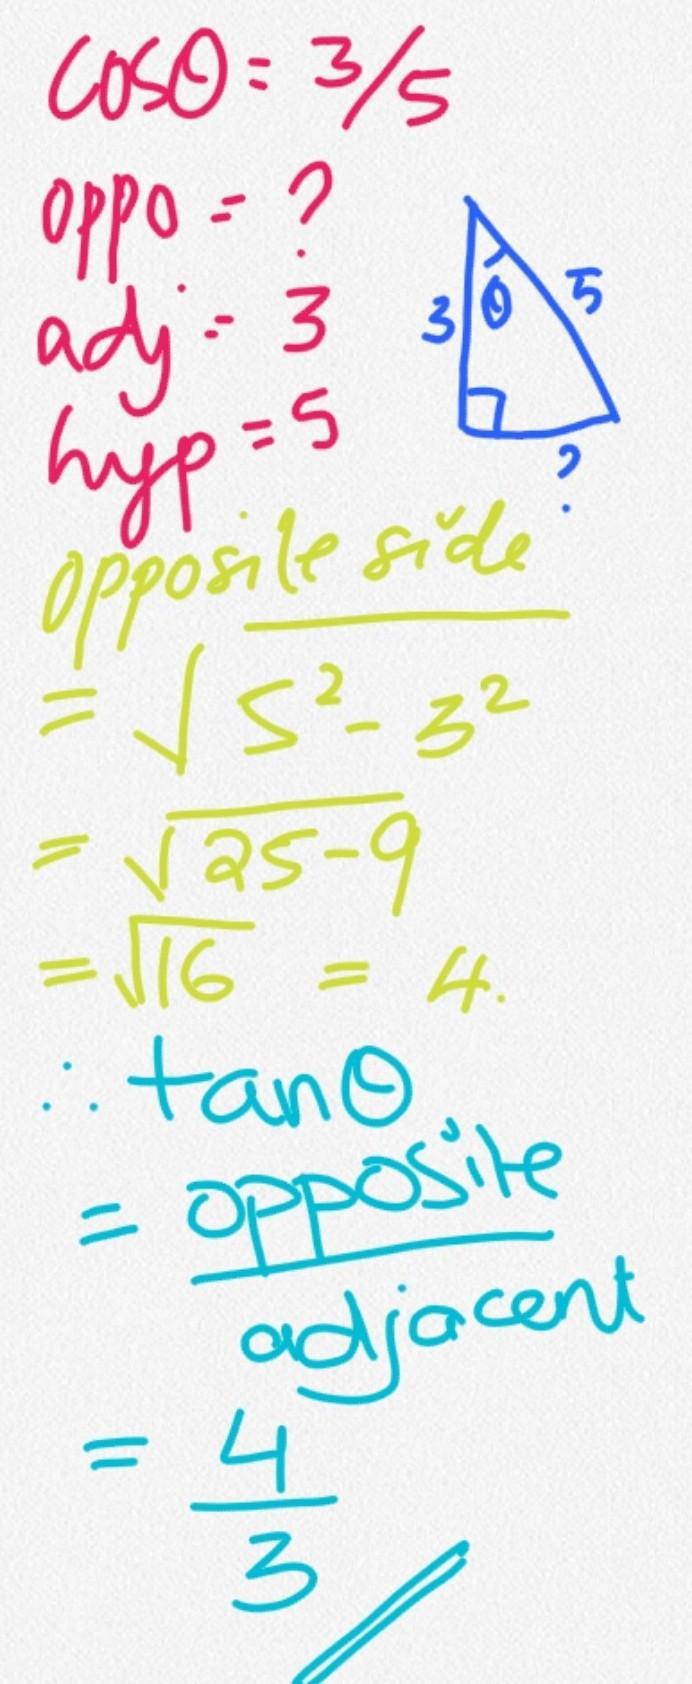 cosθ = 3/5
oppo = ?
adj = 3
hyp = 5
3 θ 5
?
opposite side
= √5² - 3²
= √25-9
= √16 = 4.
∴ tanθ
= opposite
adjacent
= 4
3